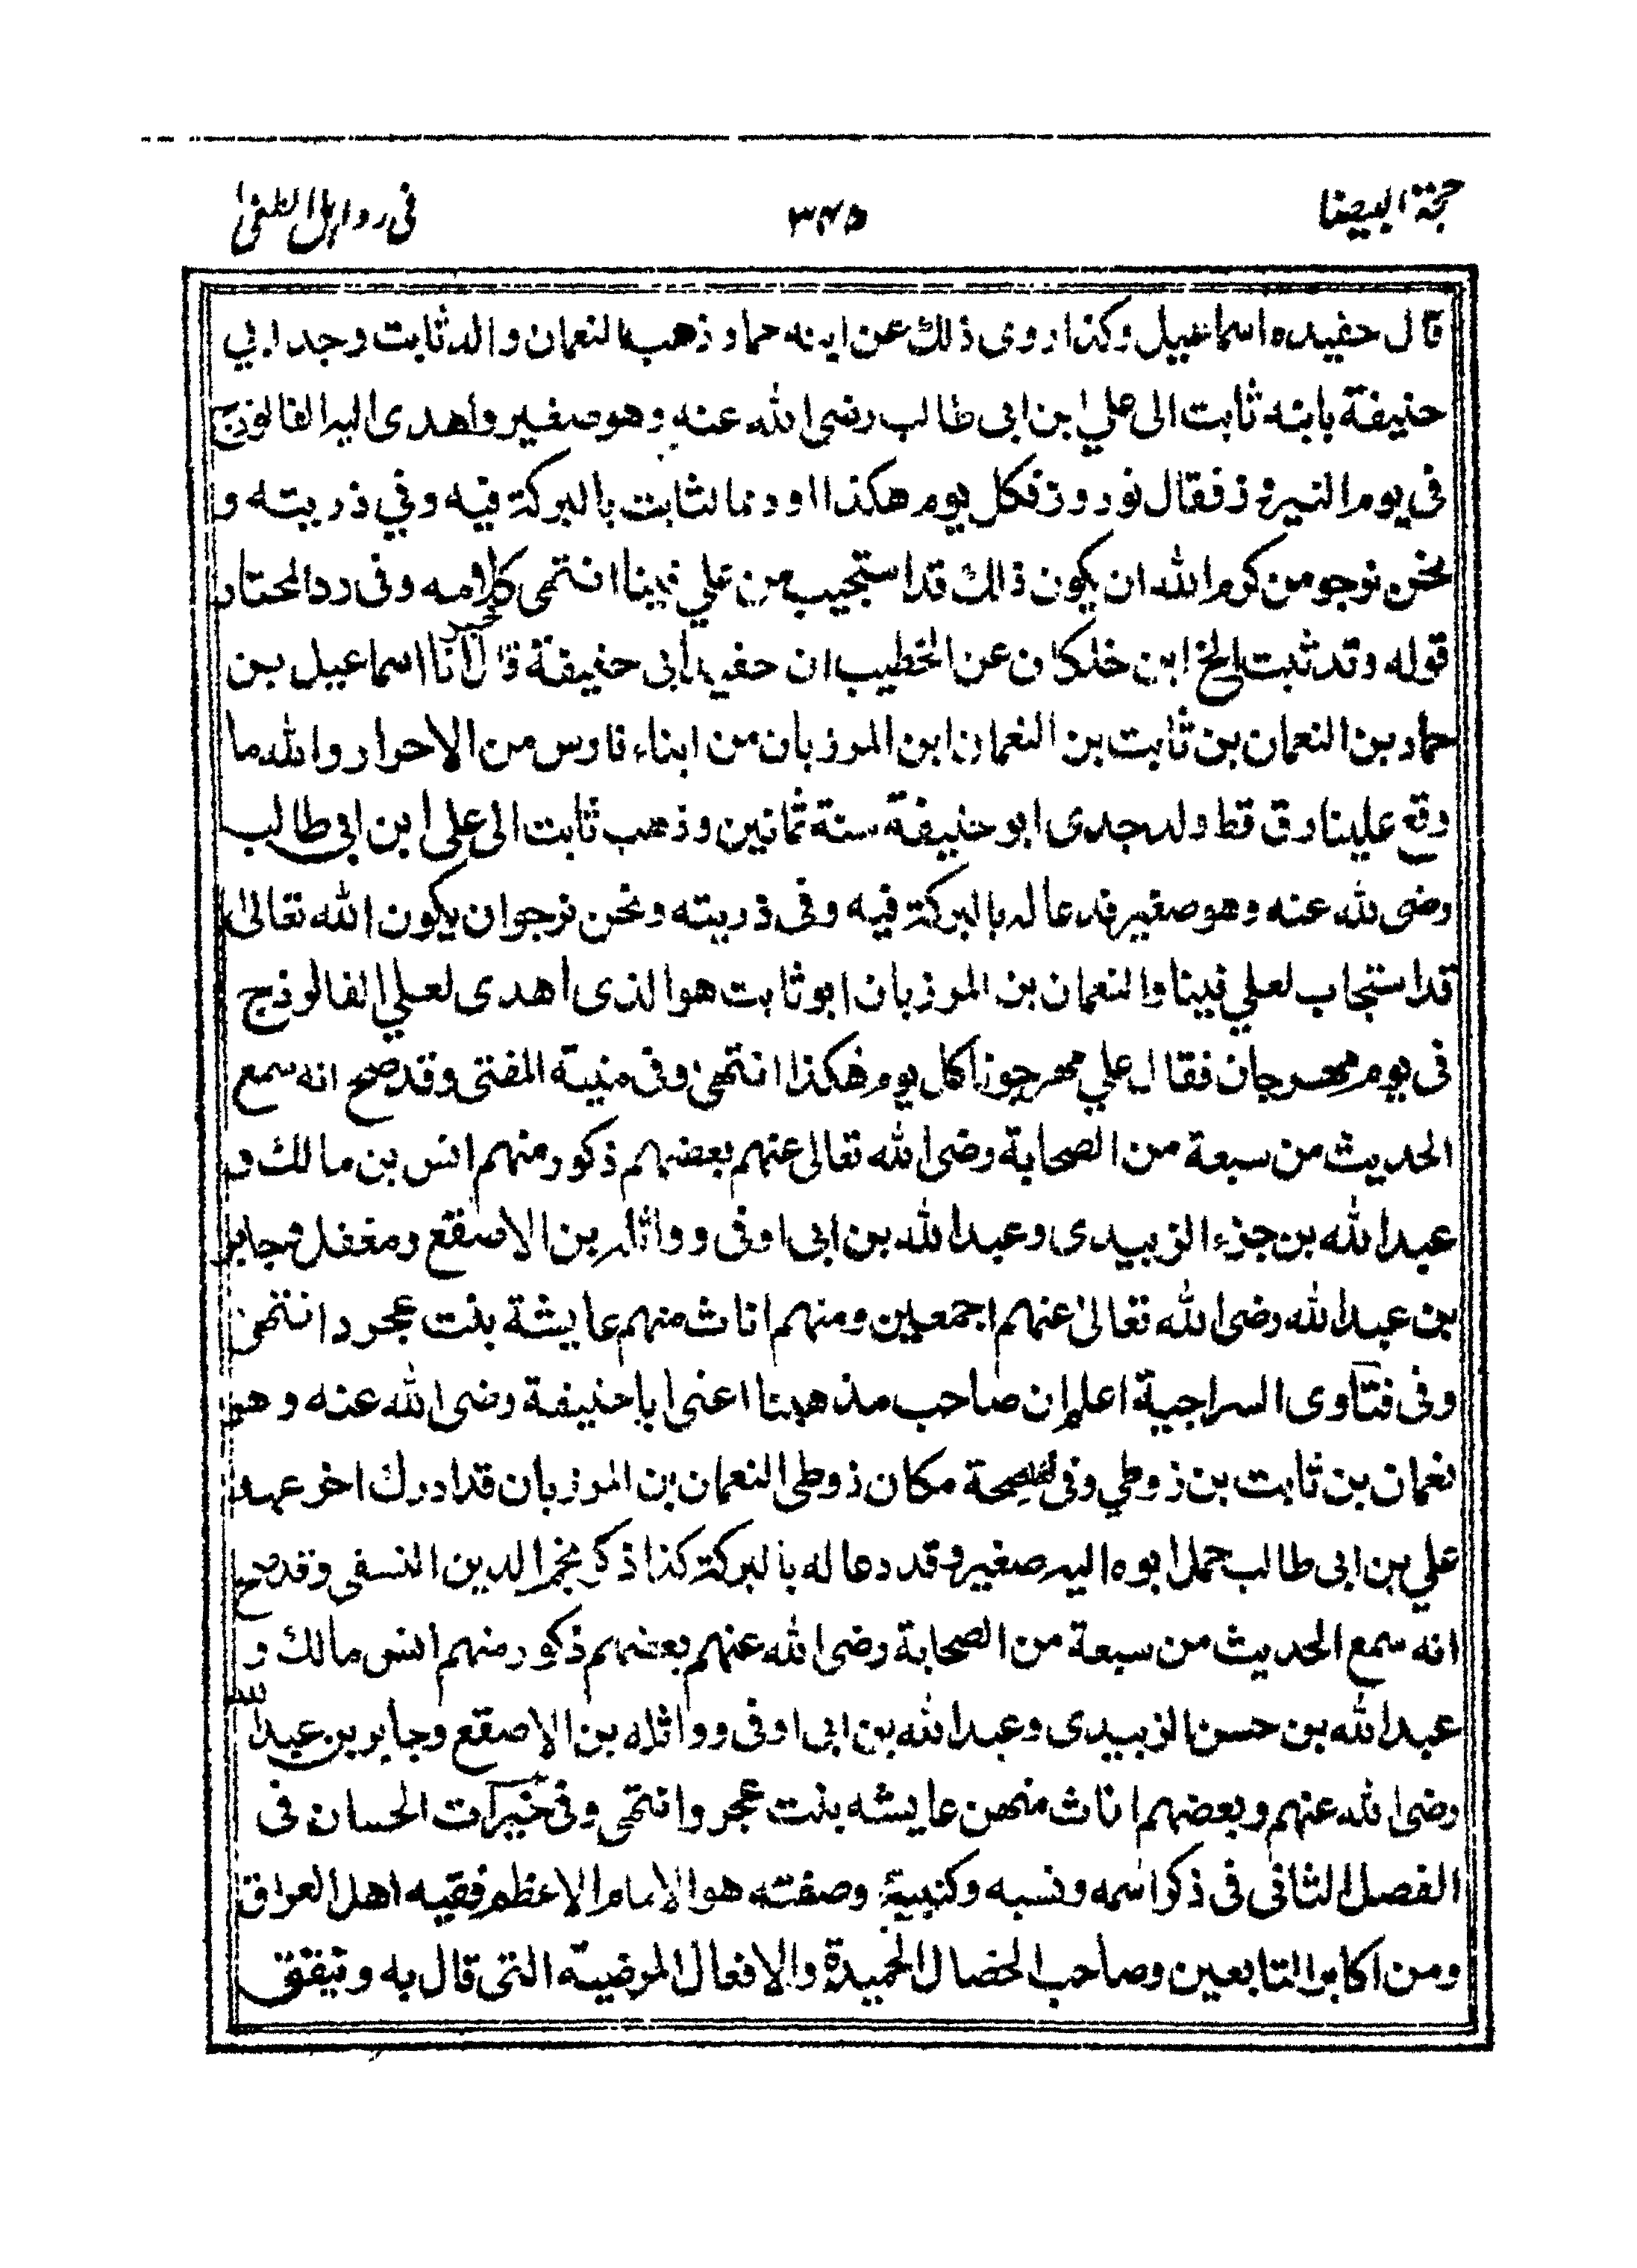 حجة البيضا ٣٤٥ فى رد اهل الطغى
قال حفيده اسماعيل وكذا روى ذلك عن ابنه حماد وذهب النعمان والد ثابت وجد ابي
حنيفة بابنه ثابت الى علي ابن ابى طالب رضى الله عنه وهو صغير واهدى اليه الفالوذج
فى يوم النيروز فقال نوروز فكل يوم هكذا او دعا لثابت بالبركة فيه وفي ذريته و
نحن نرجو من كرم الله ان يكون ذلك قد استجيب من علي فينا انتهى كلامه وفى رد المحتار
قوله وقد ثبت الخ ابن خلكان عن الخطيب ان حفيد أبى حنيفة قال انا اسماعيل بن
حماد بن النعمان بن ثابت بن النعمان ابن المرزبان من ابناء فارس من الاحرار والله ما
وقع علينا رق قط ولد جدى ابو حنيفة سنة ثمانين وذهب ثابت الى على ابن ابى طالب
رضى لله عنه وهو صغير فدعا له بالبركة فيه وفى ذريته ونحن نرجو ان يكون الله تعالىٰ
قد استجاب لعلي فينا والنعمان بن المرزبان ابو ثابت هو الذى اهدى لعلي الفالوذج
فى يوم مهرجان فقال علي مهرجونا كل يوم هكذا انتهىٰ وفى منية المفتى وقد صح انه سمع
الحديث من سبعة من الصحابة رضى الله تعالى عنهم بعضهم ذكور منهم انس بن مالك و
عبد الله بن جزء الزبيدى وعبد الله بن ابى اوفى وواثله بن الاصقع ومغفل وجابر
بن عبد الله رضى الله تعالىٰ عنهم اجمعين ومنهم اناث منهم عايشة بنت عجرد انتهىٰ
وفى فتاوى السراجية اعلم ان صاحب مذهبنا اعنى ابا حنيفة رضى الله عنه وهو
نعمان بن ثابت بن زوطي وفى نسخة مكان زوطى النعمان بن المرزبان قد ادرك اخر عهد
علي بن ابى طالب حمل ابوه اليه صغير وقد دعا له بالبركة كذا ذكره نجم الدين النسفى وقد صح
انه سمع الحديث من سبعة من الصحابة رضى الله عنهم بعضهم ذكور منهم انس مالك و
عبد الله بن حسن الزبيدى وعبد الله بن ابى اوفى وواثله بن الاصقع وجابر بن عبد الله
رضى الله عنهم وبعضهم اناث منهن عايشه بنت عجرد انتهى وفى خيرات الحسان فى
الفصل الثانى فى ذكر اسمه ونسبه وكنيته وصفته هو الامام الاعظم فقيه اهل العراق
ومن اكابر التابعين وصاحب الخصال الحميدة والافعال المرضية التى قال به ويتفق